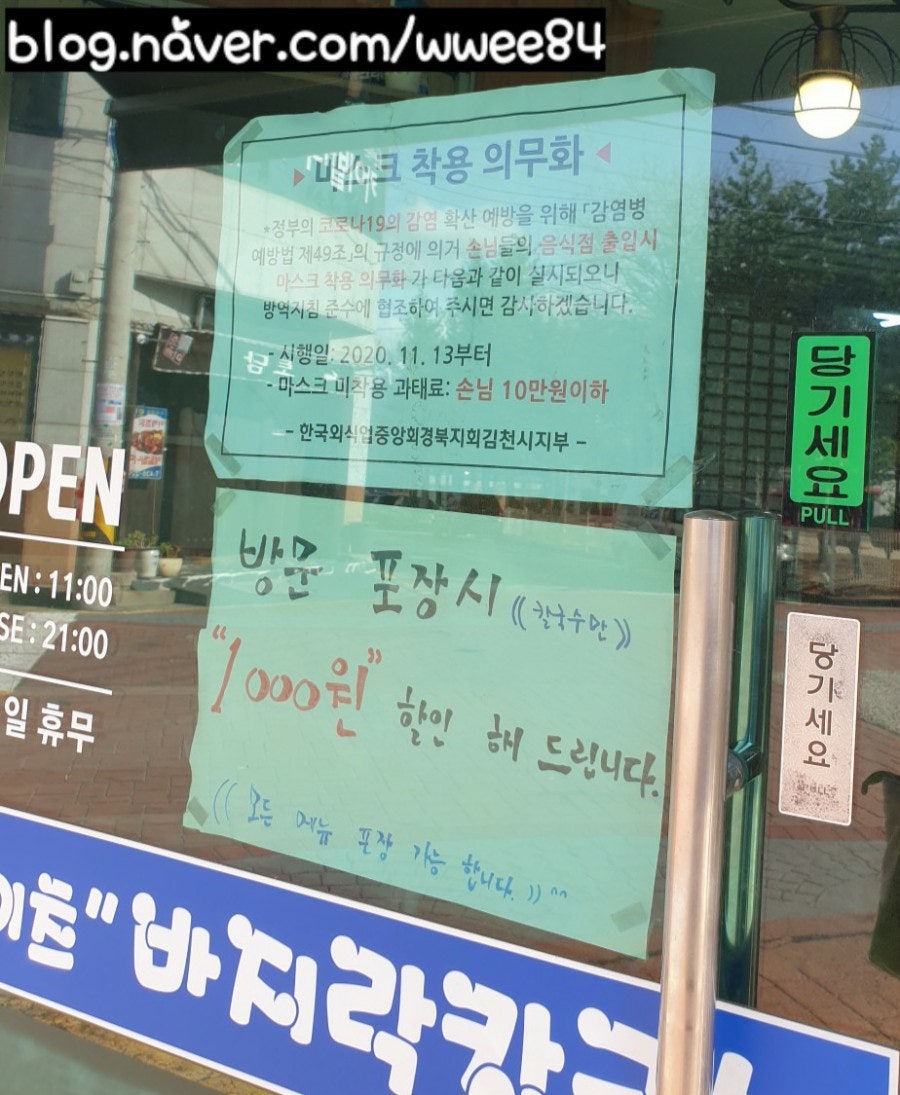 blog.naver.com/wwee84
마스크 착용 의무화
*정부의 코로나19의 감염 확산 예방을 위해 「감염병
예방법 제49조」의 규정에 의거 손님들의 음식점 출입시
마스크 착용 의무화 가 다음과 같이 실시되오니
방역지침 준수에 협조하여 주시면 감사하겠습니다.
- 시행일: 2020. 11. 13부터
- 마스크 미착용 과태료: 손님 10만원이하
- 한국외식업중앙회경북지회김천시지부 -
방문 포장시 ((칼국수만))
"1000원" 할인 해 드립니다.
((모든 메뉴 포장 가능 합니다.)) ^^
OPEN
EN : 11:00
SE : 21:00
일 휴무
당기세요
PULL
당기세요
"바지락칼